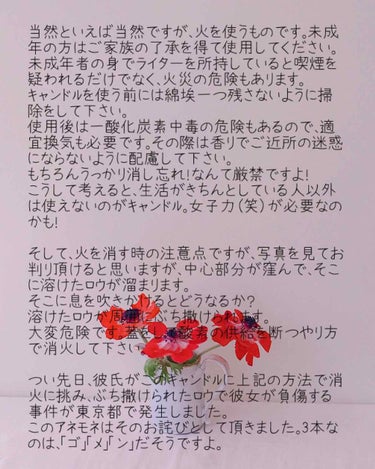 当然といえば当然ですが、火を使うものです。未成
年の方はご家族の了承を得て使用してください。
未成年者の身でライターを所持していると喫煙を
疑われるだけでなく、火災の危険もあります。
キャンドルを使う前には綿埃一つ残さないように掃
除をして下さい。
使用後は一酸化炭素中毒の危険もあるので、適
宜換気も必要です。その際は香りでご近所の迷惑
にならないように配慮して下さい。
もちろんうっかり消し忘れ!なんて厳禁ですよ!
こうして考えると、生活がきちんとしている人以外
は使えないのがキャンドル。女子力(笑)が必要なの
かも!
そして、火を消す時の注意点ですが、写真を見てお
判り頂けると思いますが、中心部分が窪んで、そこ
に溶けたロウが溜まります。
そこに息を吹きかけるとどうなるか?
溶けたロウが周囲にぶち撒けられます。
大変危険です。蓋をして酸素の供給を断つやり方
で消火して下さい。
つい先日、彼氏がこのキャンドルに上記の方法で消
火に挑み、ぶち撒けられたロウで彼女が負傷する
事件が東京都で発生しました。
このアネモネはそのお詫びとして頂きました。3本な
のは、「ゴ」「メ」「ン」だそうですよ。